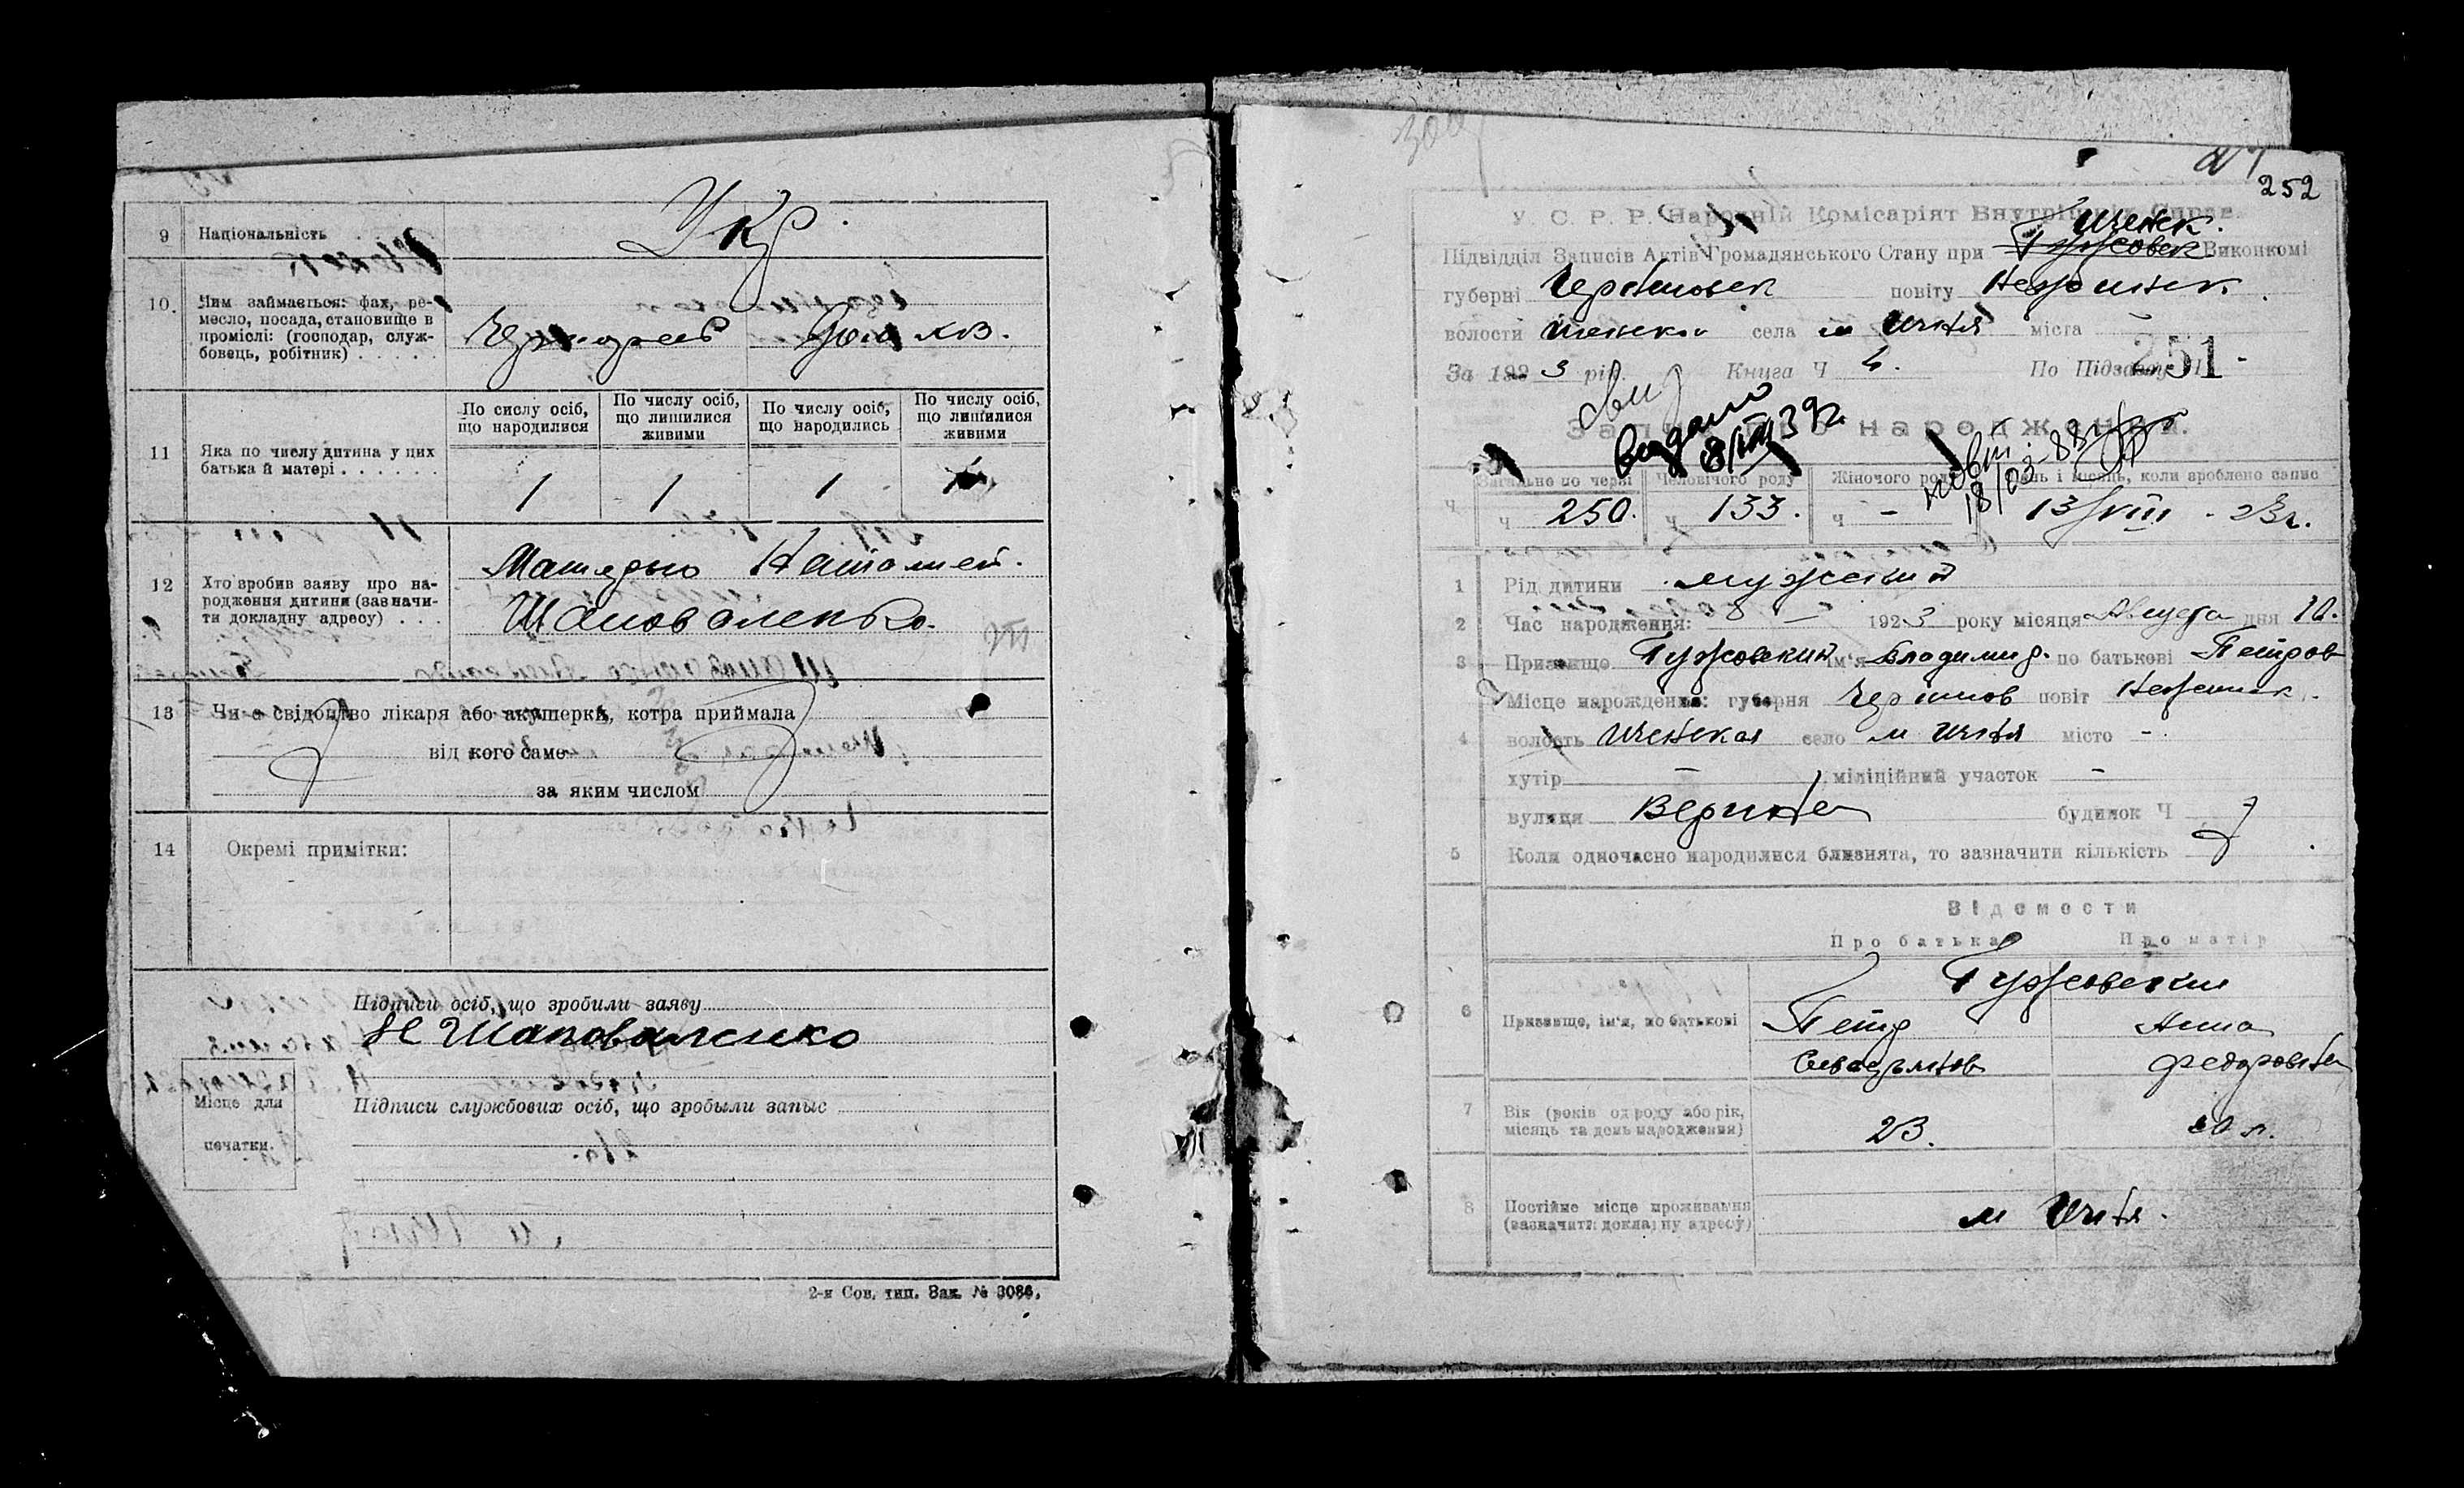 9 Національність
Укр.
10. Чим займається: фах, ре-
месло, посада, становище в
проміслі: (господар, служ-
бовець, робітник)
11 Яка по числу дитина у цих
батька й матері
По сислу осіб,
що народилися
По числу осіб,
що лишилися
живими
По числу осіб,
що народились
По числу осіб,
що лишилися
живими
1 1 1
12 Хто зробив заяву про на-
родження дитини (зазначи-
ти докладну адресу)
Шаповаленко.
13 Чи є свідоцтво лікаря або акушерки, котра приймала
від кого саме
за яким числом
14 Окремі примітки:
Підписи осіб, що зробили заяву
Н Шаповаленко
Підписи службових осіб, що зробыли запыс
Місце для
печатки.
2-я Сов. тип. Зак. № 3086.
252
У. С. Р. Р. Народній Комісаріят Внутрішніх Справ.
Иченск.
Підвідділ Записів Актів Громадянського Стану при Виконкомі
губерні Черниговск повіту Нежинск.
волости села м Ичня міста
За 1923 рік. Книга Ч По Підзагоду
251
видано
8/VIII 39 г.
18/03-88
Запис про народження.
Загально по черзі Чоловічого роду Жіночого роду День і місяць, коли зроблено запис
ч 250. ч 133. ч - 13/VIII - 23 г.
1 Рід дитини мужской
2 Час народження: 1923 року місяця Августа дня 10.
3 Призвище Гужовский ім'я Владимир. по батькові Петров
4 Місце нарождення: губерня Чернигов повіт Нежинск.
волость Иченская село м Ичня місто -
хутір - міліційний участок -
вулиця будинок Ч
5 Коли одночасно народилися близнята, то зазначити кількість
Відомости
Про батька Про матір
6 Призвище, ім'я, по батькові
Гужовский
Петр Анна
Федоровна
7 Вік (років од роду або рік,
місяць та день народження)
23. 20 л.
8 Постійне місце проживання
(зазначити докладну адресу)
м Ичня.